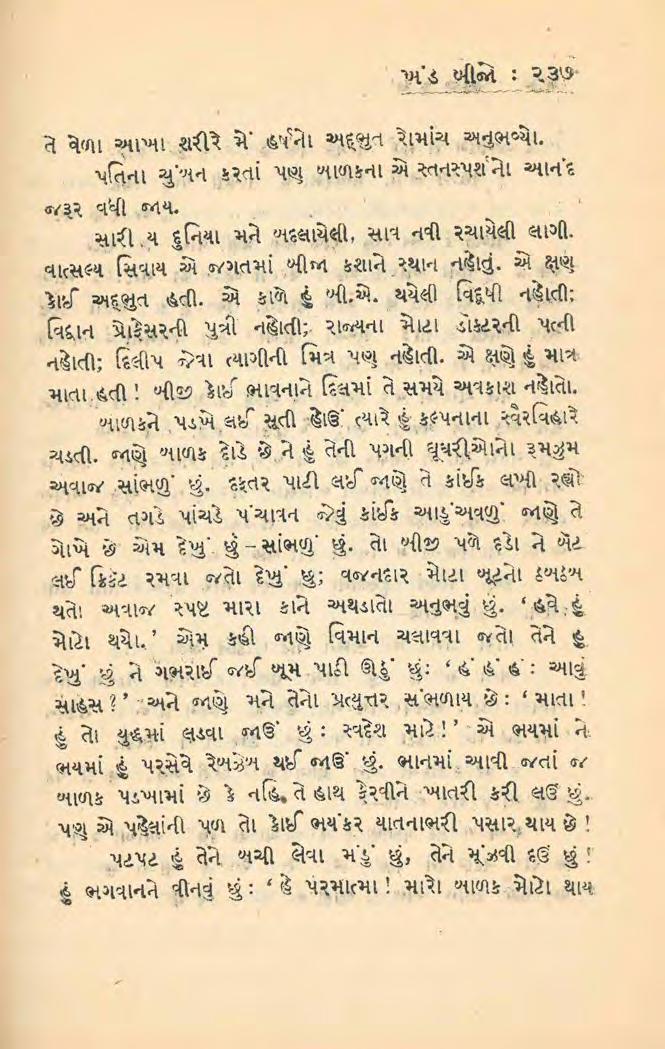 ખંડ બીજો : ૨૩૭
તે વેળા આખા શરીરે મેં હર્ષનો અદ્ભુત રોમાંચ અનુભવ્યો.
પતિના ચુંબન કરતાં પણ બાળકના એ સ્તનસ્પર્શનો આનંદ
જરૂર વધી જાય.
સારી ય દુનિયા મને બદલાયેલી, સાવ નવી રચાયેલી લાગી.
વાત્સલ્ય સિવાય એ જગતમાં બીજા કશાને સ્થાન નહોતું. એ ક્ષણ
કોઈ અદ્ભુત હતી. એ કાળે હું બી.એ. થયેલી વિદૂષી નહોતી;
વિદ્વાન પ્રોફેસરની પુત્રી નહોતી; રાજ્યના મોટા ડૉક્ટરની પત્ની
નહોતી; દિલીપ જેવા ત્યાગીની મિત્ર પણ નહોતી. એ ક્ષણે હું માત્ર
માતા હતી ! બીજી કોઈ ભાવનાને દિલમાં તે સમયે અવકાશ નહોતો.
બાળકને પડખે લઈ સૂતી હોઉં ત્યારે હું કલ્પનાના સ્વૈરવિહારે
ચડતી. જાણે બાળક દોડે છે ને હું તેની પગની ઘૂઘરીઓનો રૂમઝુમ
અવાજ સાંભળું છું. દફતર પાટી લઈ જાણે તે કાંઈક લખી રહ્યો
છે અને તગડે પાંચડે પંચાવન જેવું કાંઈક આડુંઅવળું જાણે તે
ગોખે છે એમ દેખું છું – સાંભળું છું. તો બીજી પળે દડો ને બૅટ
લઈ ક્રિકેટ રમવા જતો દેખું છું; વજનદાર મોટા બૂટનો ડબડબ
થતો અવાજ સ્પષ્ટ મારા કાને અથડાતો અનુભવું છું. ‘હવે હું
મોટો થયો.’ એમ કહી જાણે વિમાન ચલાવવા જતો તેને હું
દેખું છું ને ગભરાઈ જઈ બૂમ પાડી ઊઠું છું: ‘હં હં હં : આવું
સાહસ ?’ અને જાણે મને તેનો પ્રત્યુત્તર સંભળાય છે : ‘માતા !
હું તો યુદ્ધમાં લડવા જાઉં છું : સ્વદેશ માટે !’ એ ભયમાં ને
ભયમાં હું પરસેવે રેબઝેબ થઈ જાઉં છું. ભાનમાં આવી જતાં જ
બાળક પડખામાં છે કે નહિ, તે હાથ ફેરવીને ખાતરી કરી લઉં છું.
પણ એ પહેલાંની પળ તો કોઈ ભયંકર યાતનાભરી પસાર થાય છે !
પટપટ હું તેને બચી લેવા મંડું છું, તેને મૂંઝવી દઉં છું !
હું ભગવાનને વીનવું છું : ‘હે પરમાત્મા ! મારો બાળક મોટો થાય